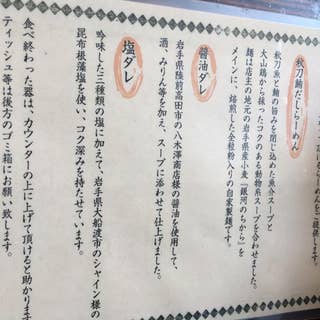 をご提供します。
秋刀鮪だしらーめん
秋刀魚と鮪の旨みを閉じ込めた魚介スープと
大山鶏から採ったコクのある動物系スープを合わせました。
麺は店主の地元の岩手県産小麦『銀河のちから』を
メインに、焙煎した全粒粉入りの自家製麺です。
醤油ダレ
岩手県陸前高田市の八木澤商店様の醤油を使用して、
酒、みりん等を加え、スープに添わせて仕上げました。
塩ダレ
吟味した三種類の塩に加えて、岩手県大船渡市のシャイン様の
昆布根藻塩を使い、コク深みを持たせています。
食べ終わった器は、カウンターの上に上げて頂けると助かります
ティッシュ等は後方のゴミ箱にお願い致します。